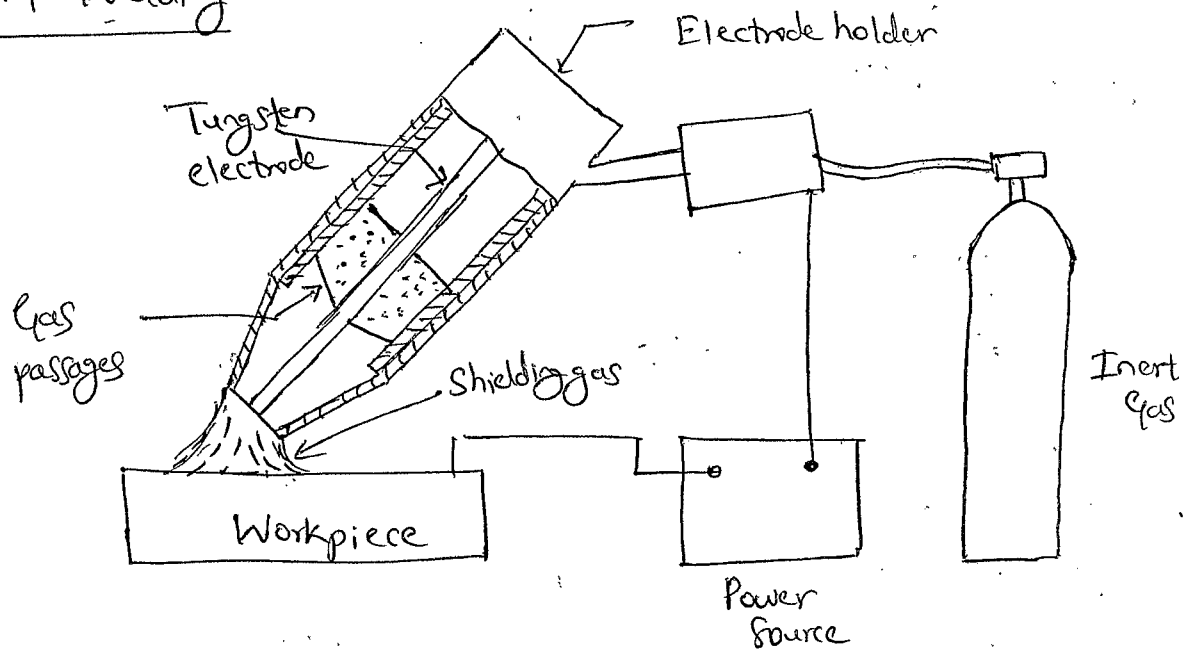 Electrode holder
Tungsten
electrode
Gas
passages
Shielding gas
Inert
Gas
Workpiece
Power
Source